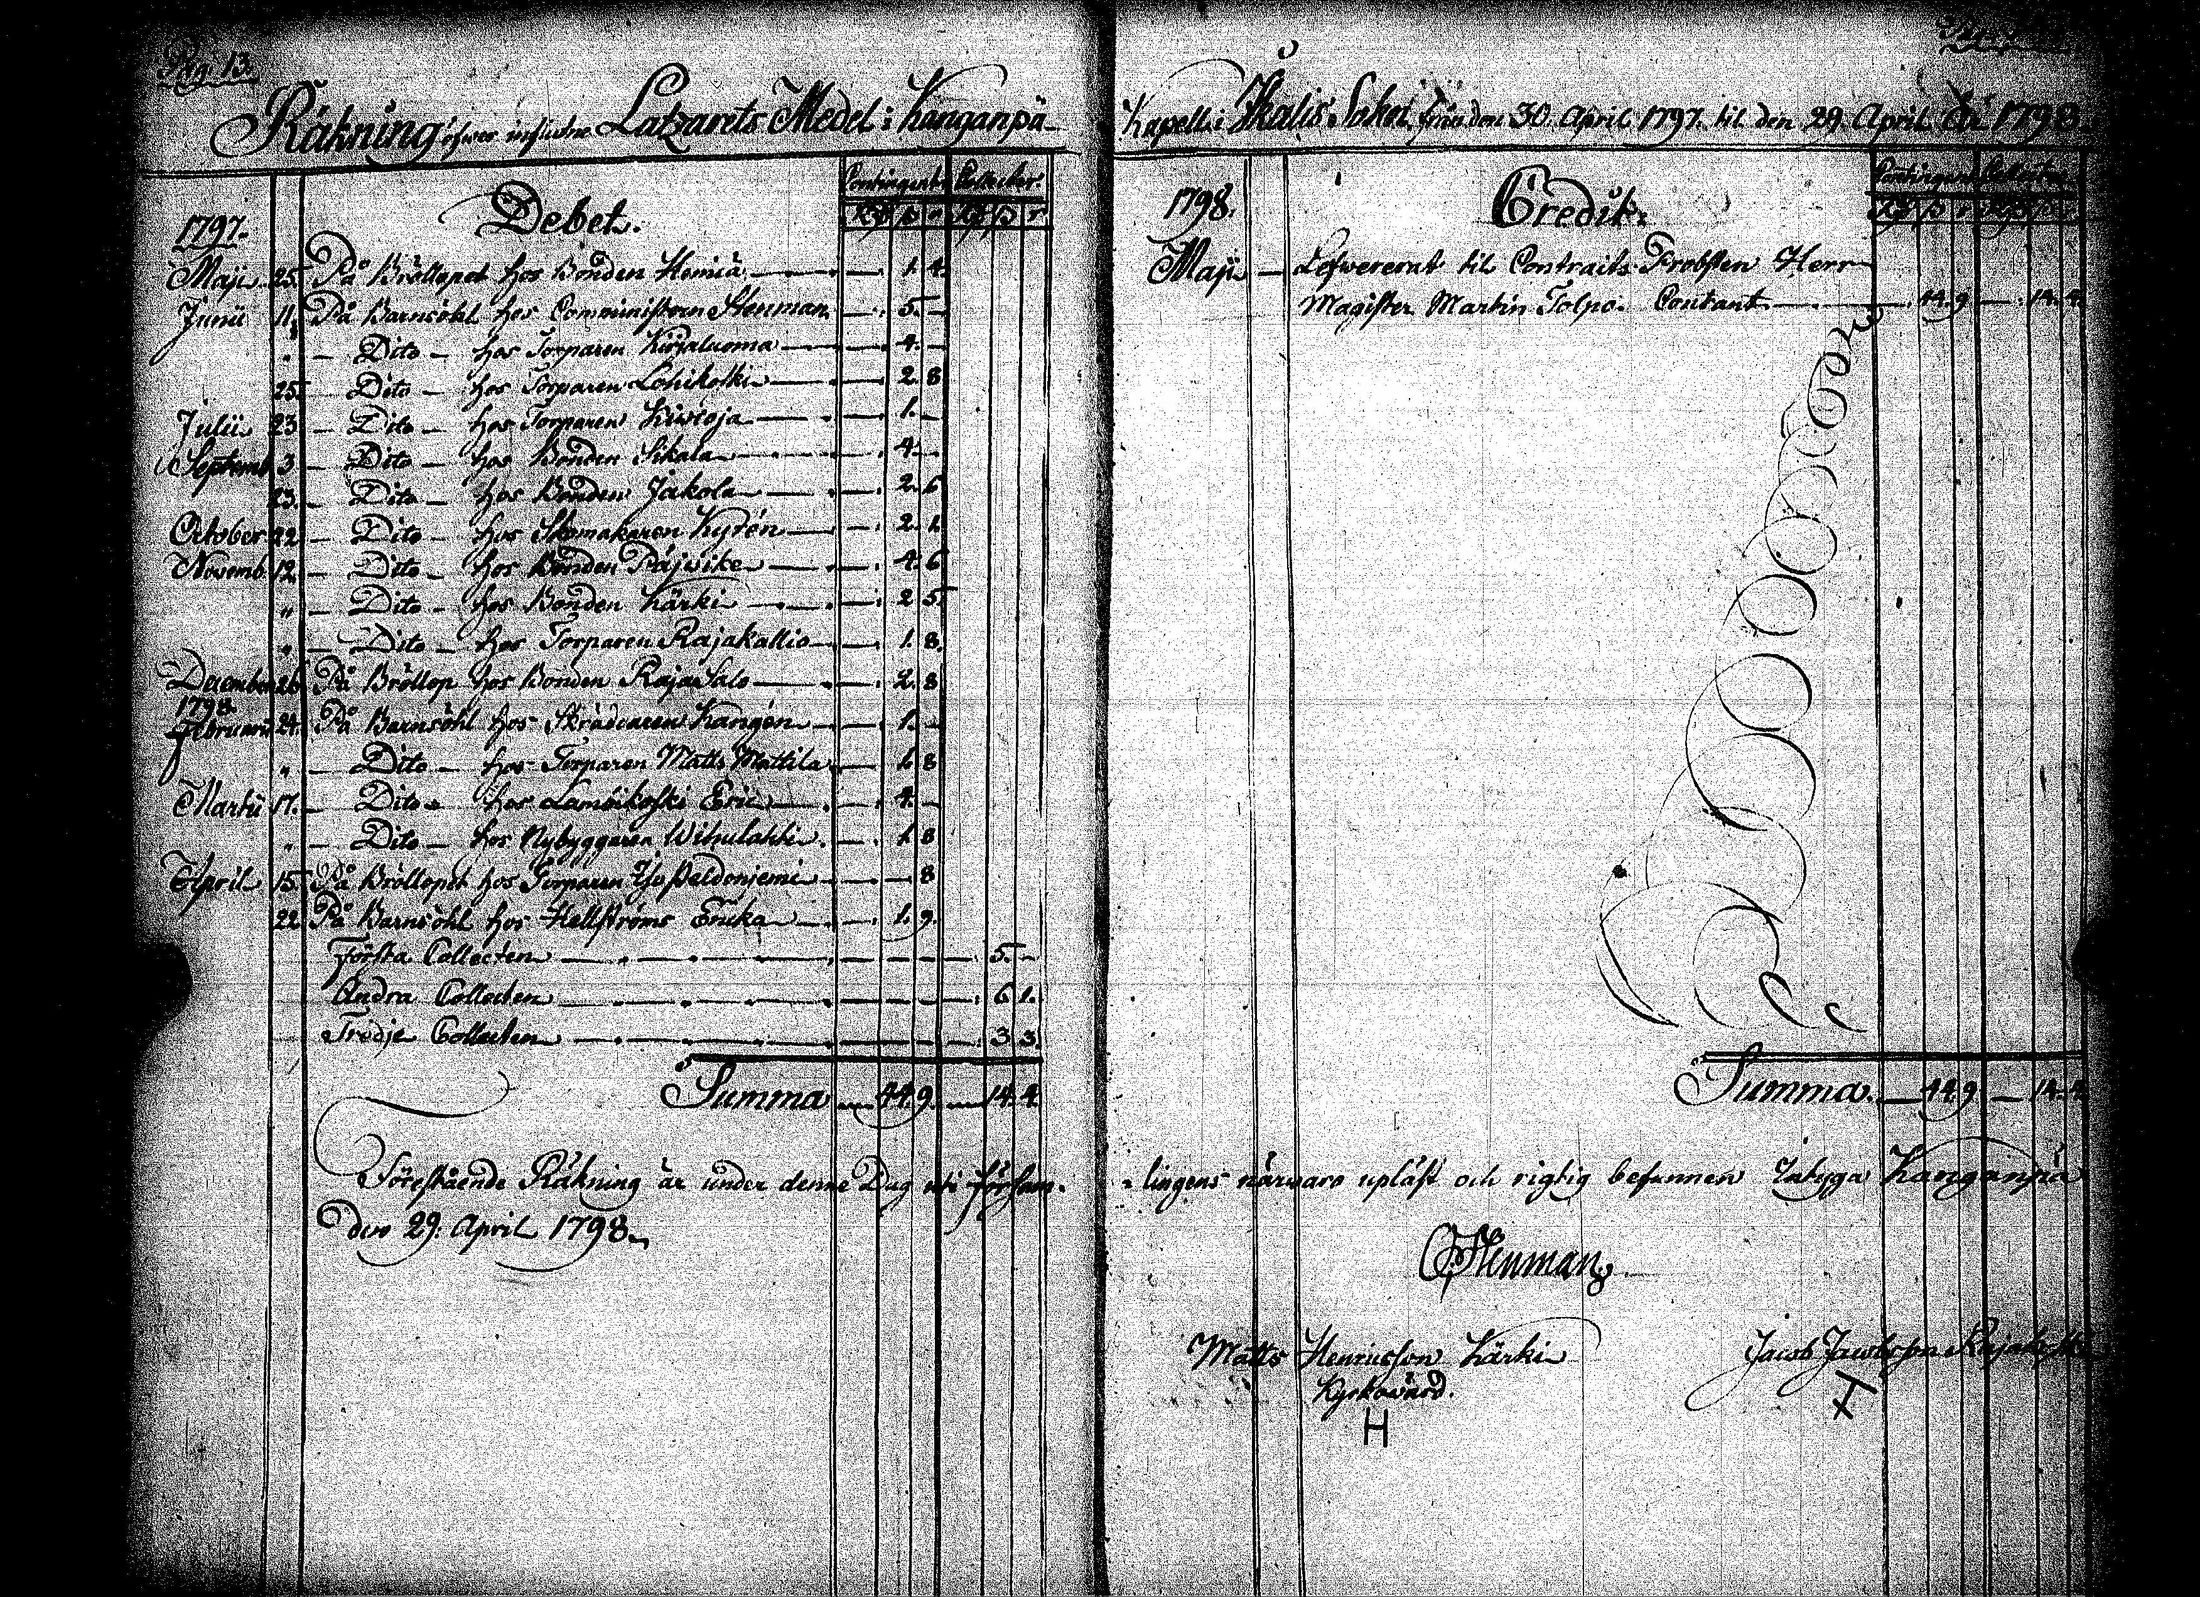 Pag. 13.
Räkning öfwer influtne Latzarets Medel i Kanganpä
Contingent Collecter.
Rd ß r Rd ß r
1797. Debet.
Maji 25. På Bröllopet hos Bonden Heiniä — 1. 4.
Junii 11. På Barnsöhl hos Comministern Stenman — 5. —
" — Dito — hos Torparen Kirjaluoma — 4. —
25. Dito — hos Torparen Lohikoski — 2. 8
Julii 23 — Dito — hos Torparen Kivioja — 1. —
Septemb. 3 — Dito — hos Bonden Sikala — 4. —
23. — Dito — hos Bonden Jakola — 2. 6
October 22 — Dito — hos Skomakaren Kyrén — 2. 1.
Novemb. 12 — Dito — hos Bonden Päjvike — 4. 6
" — Dito — hos Bonden Kärki — 2 5.
" — Dito — hos Torparen Rajakallio — 1. 8.
December 26 På Bröllop hos Bonden RajaSalo — 2. 8
1798.
Februarii 24. På Barnsöhl hos Skräddaren Kangén — 1. —
" — Dito — hos Torparen Matts Mattila — 1. 8
Martii 17. — Dito — hos Lamóikoski Eric — 4. —
" — Dito — hos Nybyggaren Wihulahti — 1. 8
April 15. På Bröllopet hos Torparen Yso Peldonjemi — — 8
22 På Barnsöhl hos Hellströms Ericka — 1. 9.
Första Collecten — 5. —
Andra Collecten — 6. 1.
Tredje Collecten — 3 3.
Summa — 44. 9. — 14. 4.
Föreståënde Räkning är under denne Dag uti försam-
den 29. April 1798.
Kapell i Ikalis Sokn, från den 30. April 1797. til den 29. April Åhr 1798.
Contingent Collecter
Rd ß r Rd ß r
1798. Credit.
Maji — Lefwererat til Contracts Probsten Herr
Magister Martin Tolpo. Contant — 44. 9 — 14. 4.
Summa. — 44. 9 — 14. 4
lingens närwaro upläst och rigtig befunnen Intyga Kanganpä
Stenman
Matts Henricsson Kärki Jacob Jacobsson
Kyrkowärd.
H X